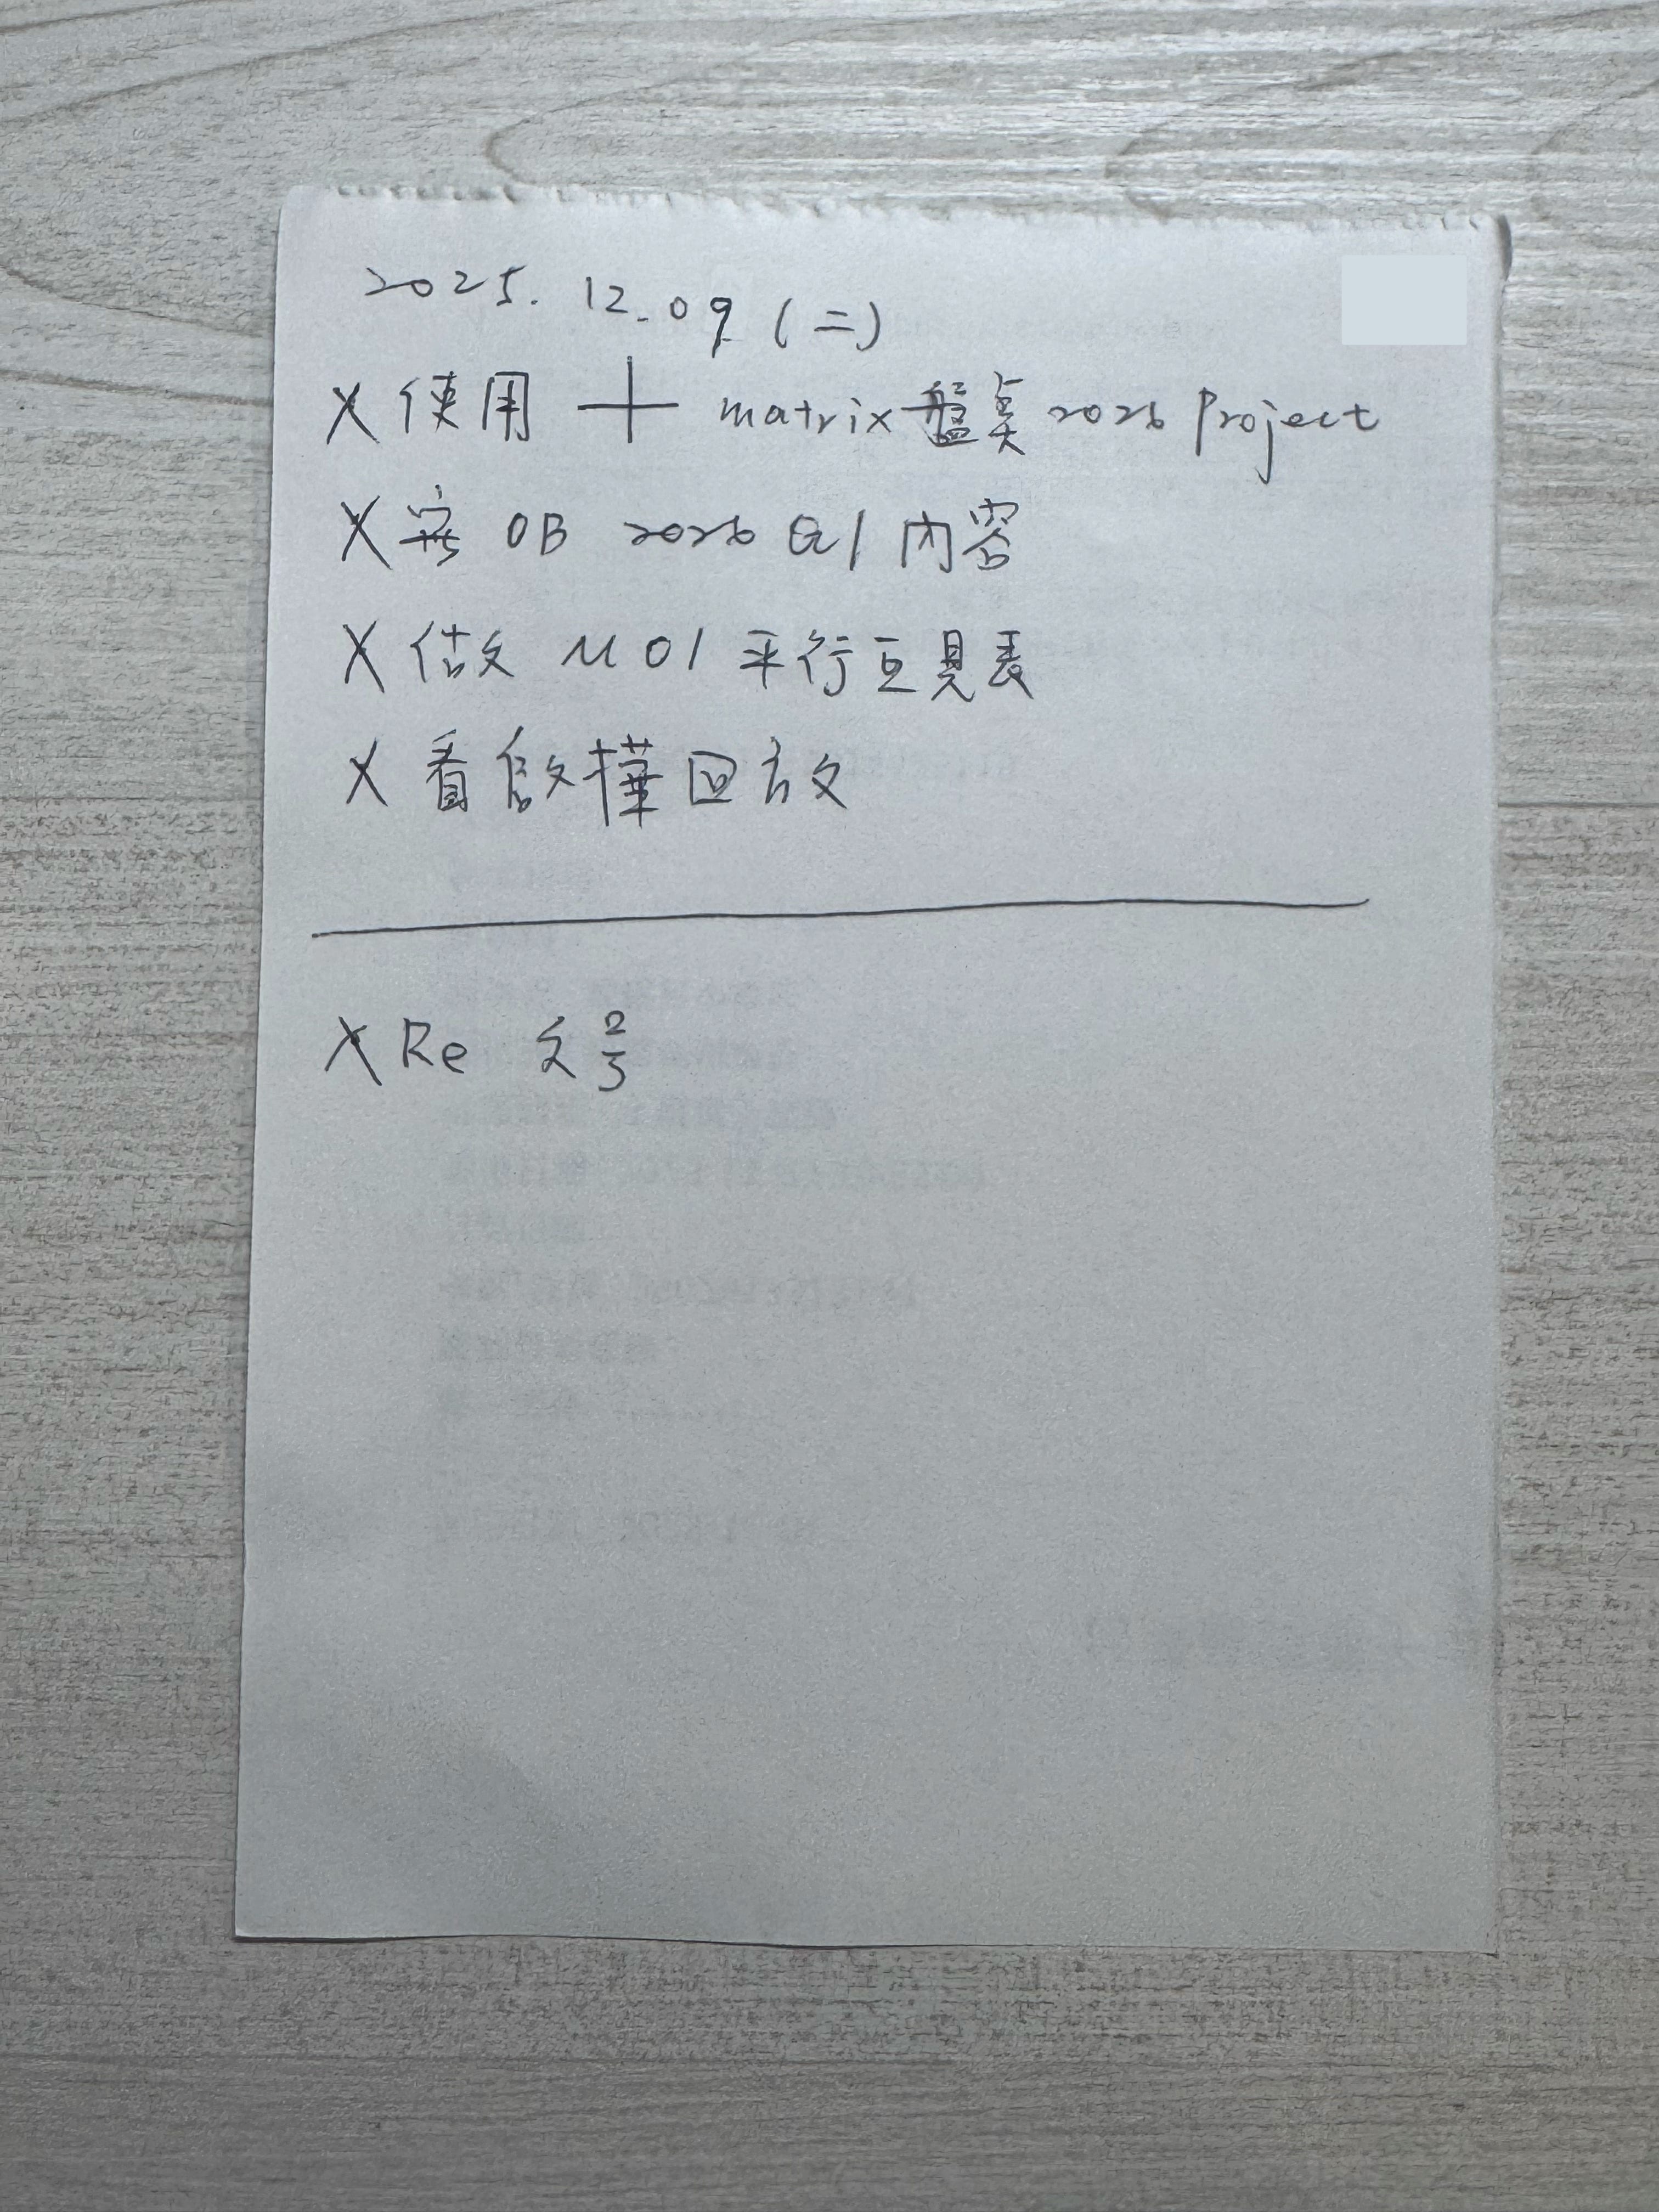 2025.12.09(二)
X 使用 十 matrix 盤點 2026 Project
X 寫 OB 2026 Q1 內容
X 做 M01 平行互見表
X 看啟樺回放
X Re